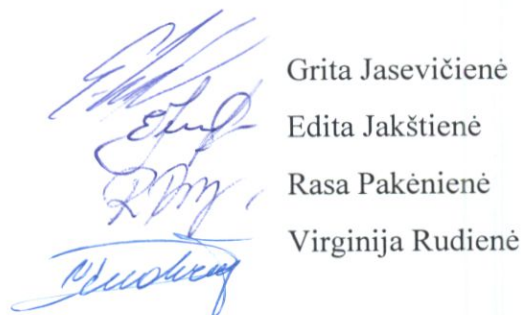 Grita Jasevičienė
Edita Jakštienė
Rasa Pakėnienė
Virginija Rudienė